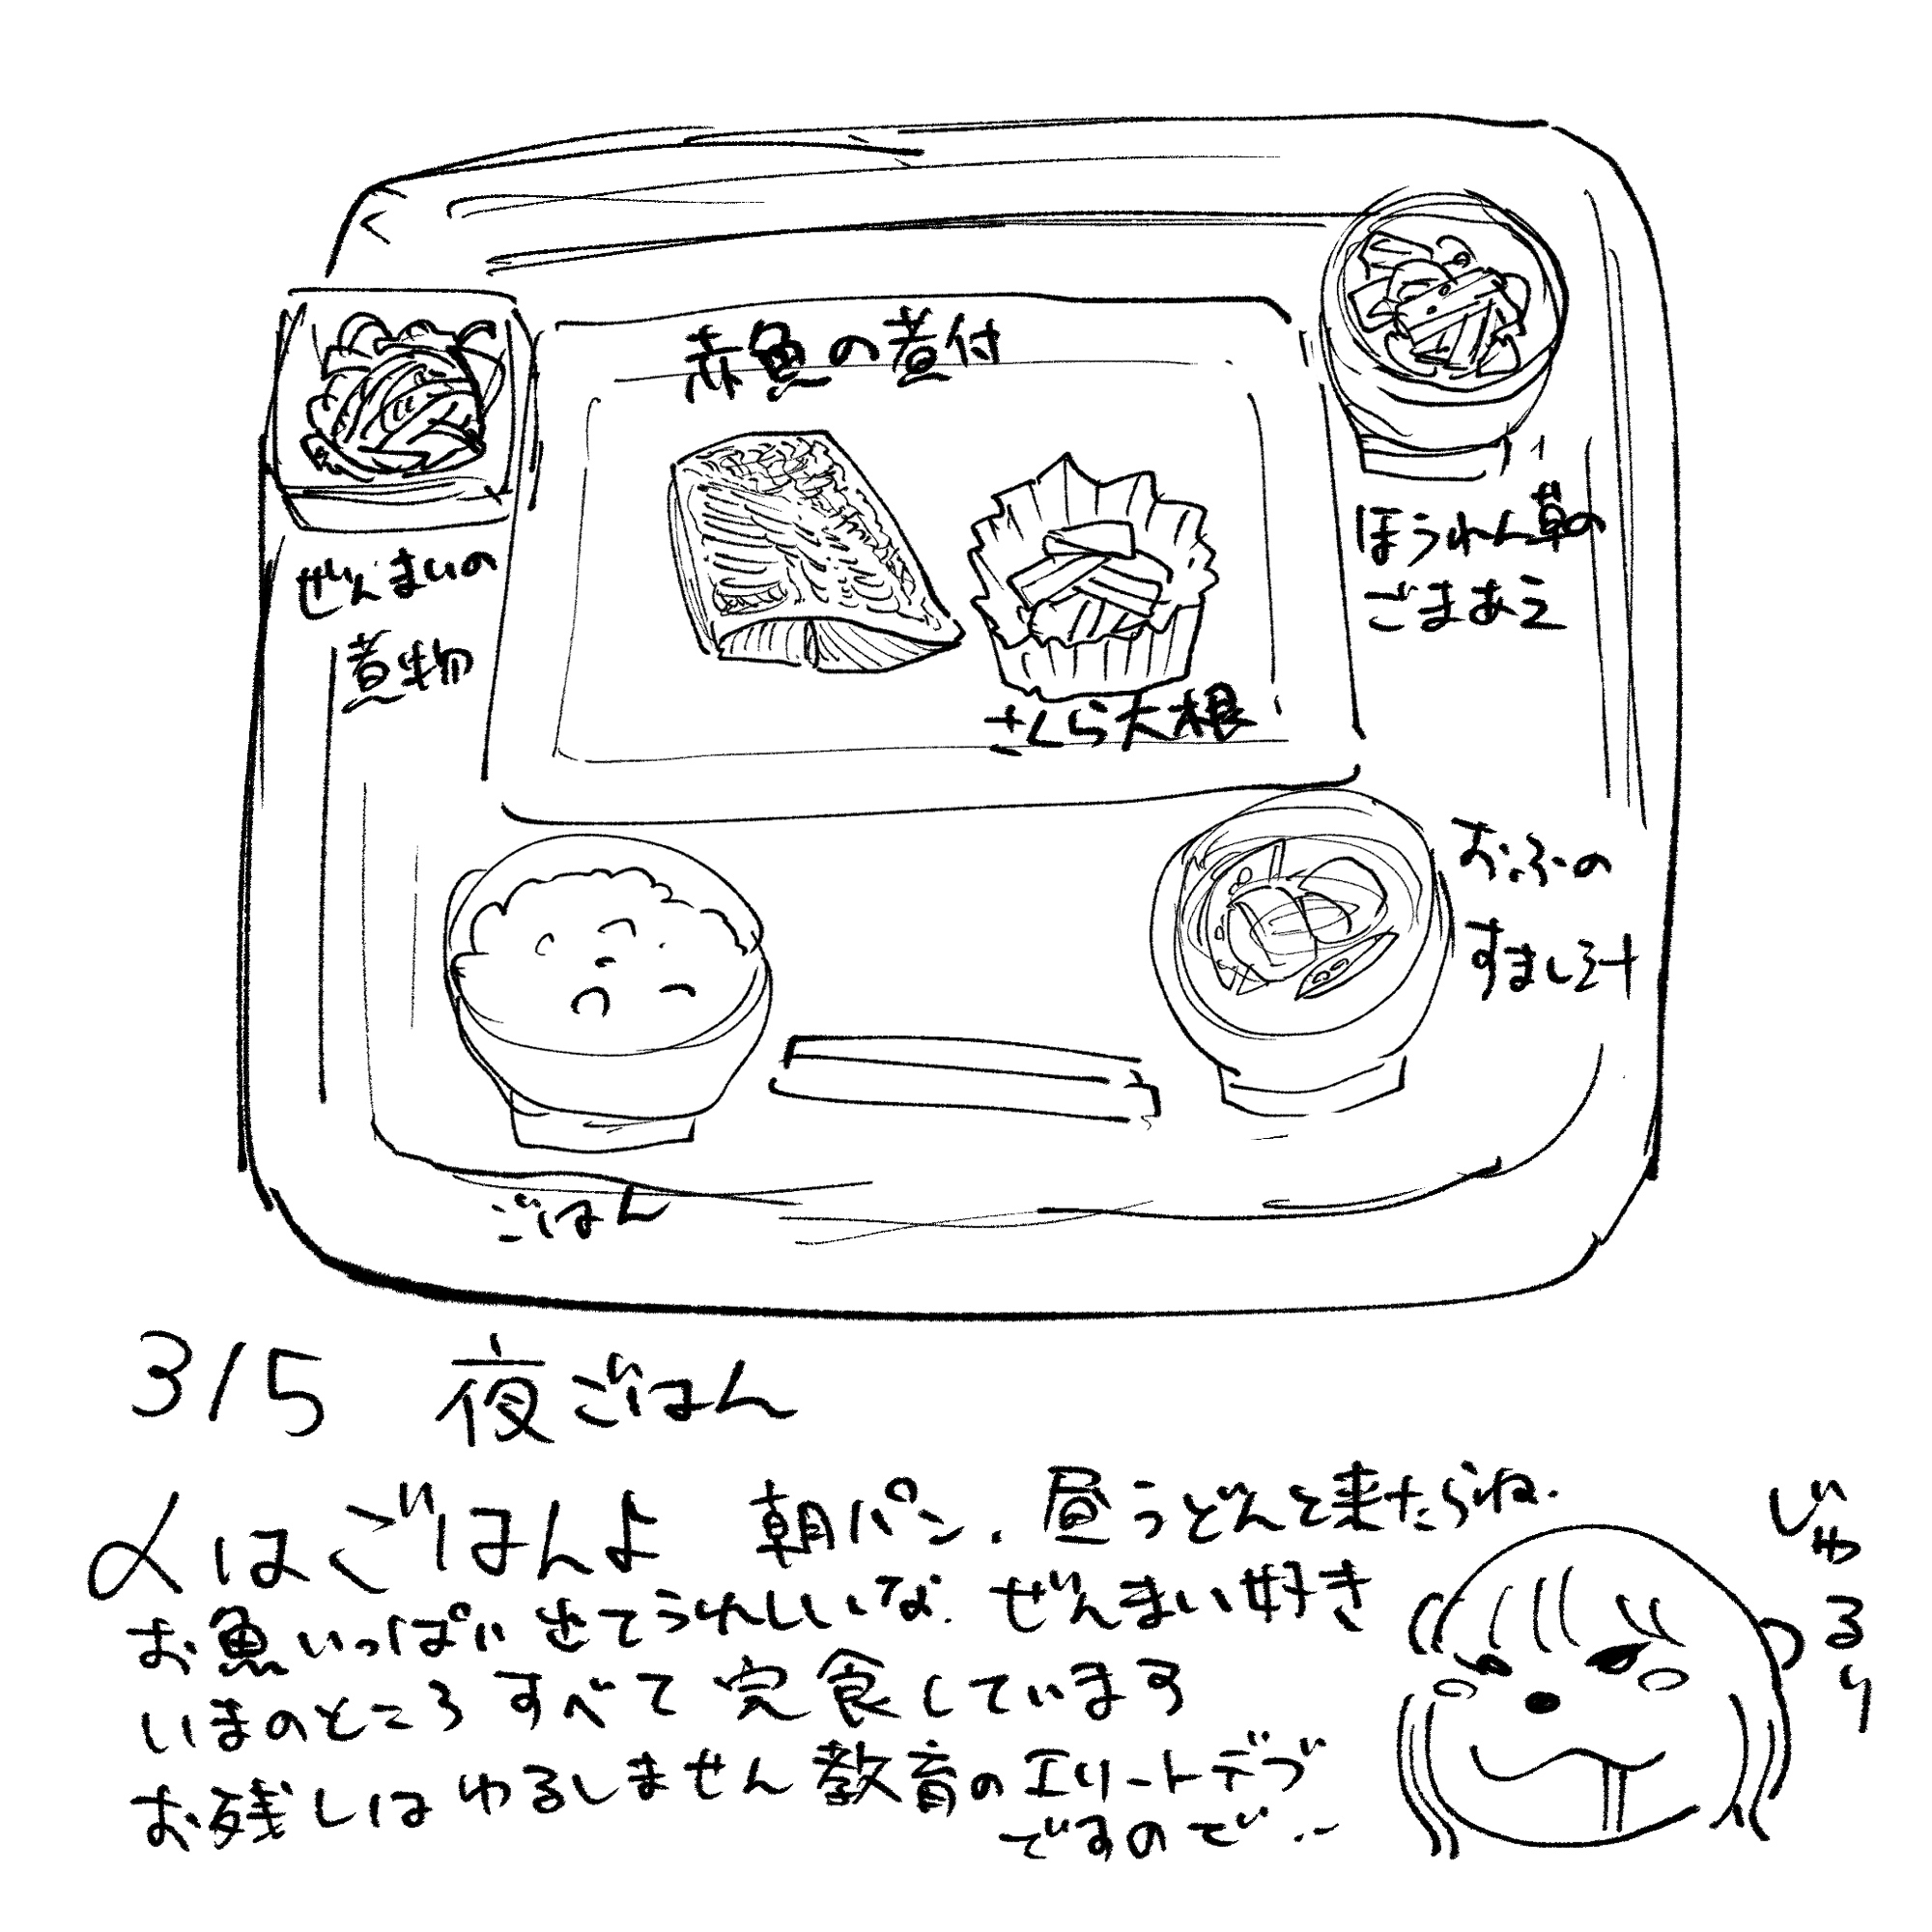 赤魚の煮付
ぜんまいの
煮物
ほうれん草の
ごまあえ
さくら大根
おふの
すまし汁
ごはん
3/5 夜ごはん
〆はごはんよ 朝パン、昼うどんと来たらね.
お魚いっぱい出てうれしいな. ぜんまい好き
いまのところすべて完食しています
お残しはゆるしません教育のエリートデブ
ですので…
じゅるり